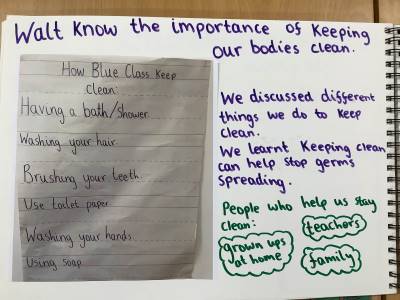 Walt Know the importance of Keeping
our bodies clean.
How Blue Class Keep
clean:
Having a bath/shower
Washing your hair.
Brushing your teeth.
Use toilet paper
Washing your hands
Using soap
We discussed different
things we do to keep
clean.
We learnt Keeping clean
can help stop germs
spreading.
People who help us stay
clean:
teachers
grown ups
at home
family